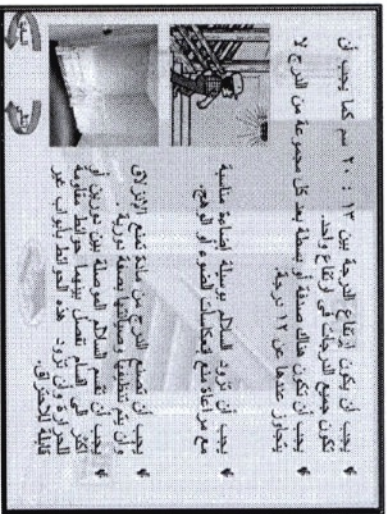 يجب أن يكون ارتفاع الدرجة بين ١٣ : ٢٠ سم كما يجب أن
تكون جميع الدرجات في ارتفاع واحد.
يجب أن تكون هناك صدفة أو بسطة بعد كل مجموعة من الدرج لا
يتجاوز عددها عن ١٢ درجة.
يجب أن تزود السلالم بوسيلة إضاءة مناسبة
مع مراعاة منع انعكاسات الضوء أو الوهج.
يجب أن تصنع الدرج من مادة تمنع الانزلاق
وان يتم تنظيفها وصيانتها بصفة دورية .
يجب أن تقسم السلالم الموصلة بين دورين أو
أكثر إلى أقسام تفصل بينهما حوائط مقاومة
للحرارة وان تزود هذه الحوائط بأبواب غير
قابلة للاحتراق.